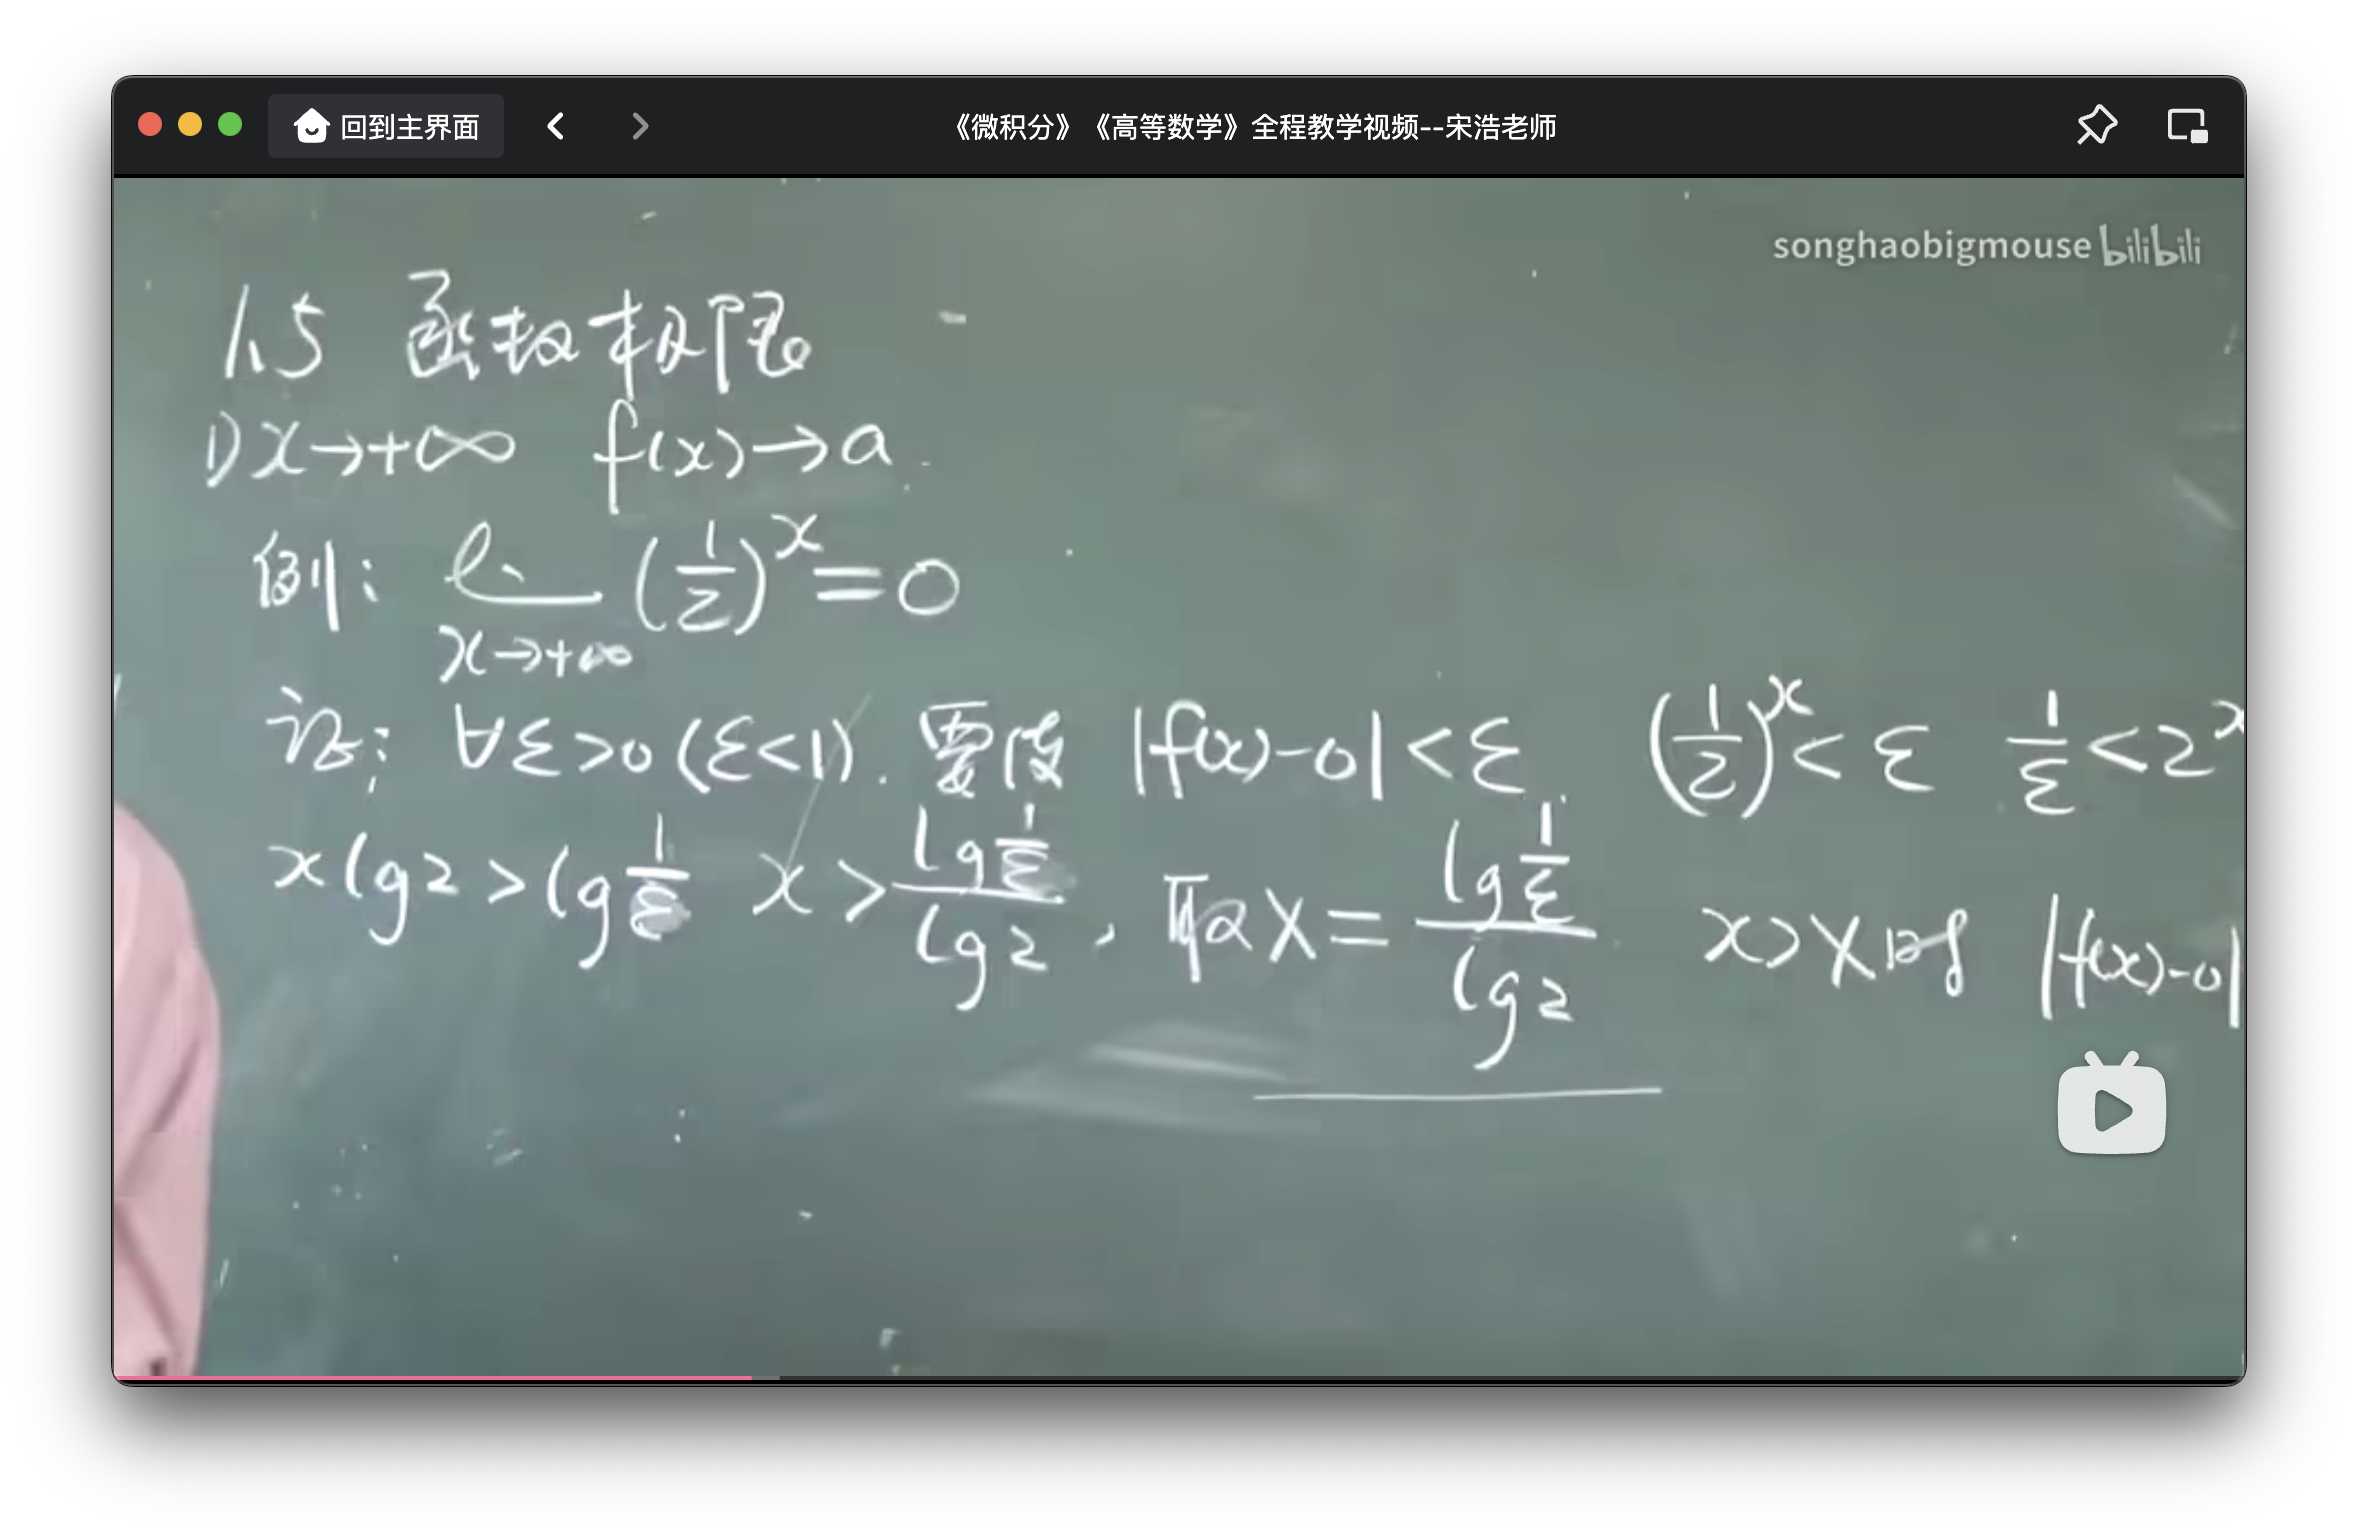 回到主界面
《微积分》《高等数学》全程教学视频--宋浩老师
songhaobigmouse bilibili
1.5 函数极限
1) x→+∞ f(x)→a.
例: lim x→+∞ (1/2)^x = 0
证: ∀ε>0 (ε<1). 要使 |f(x)-0|<ε. (1/2)^x<ε 1/ε<2^x
xlg2>lg1/ε x>lg1/ε/lg2, 取X=lg1/ε/lg2 x>X时 |f(x)-0|